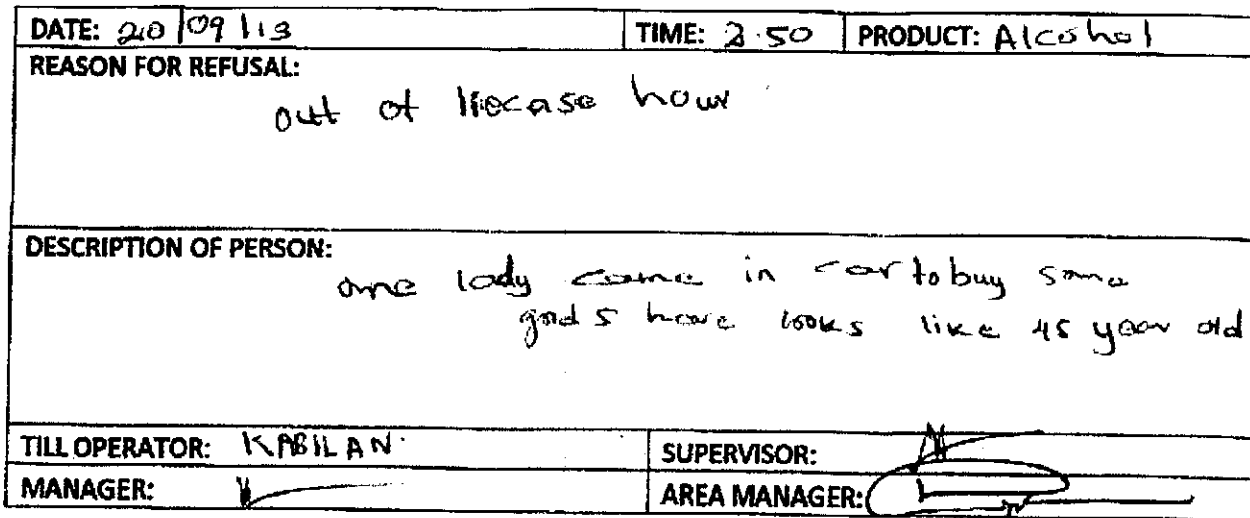 DATE: 20/09/13 TIME: 2.50 PRODUCT: Alcohol
REASON FOR REFUSAL:
out of liecase hour
DESCRIPTION OF PERSON:
one lady came in car to buy some
good s have looks like 45 year old
TILL OPERATOR: KABILAN. SUPERVISOR:
MANAGER: AREA MANAGER: